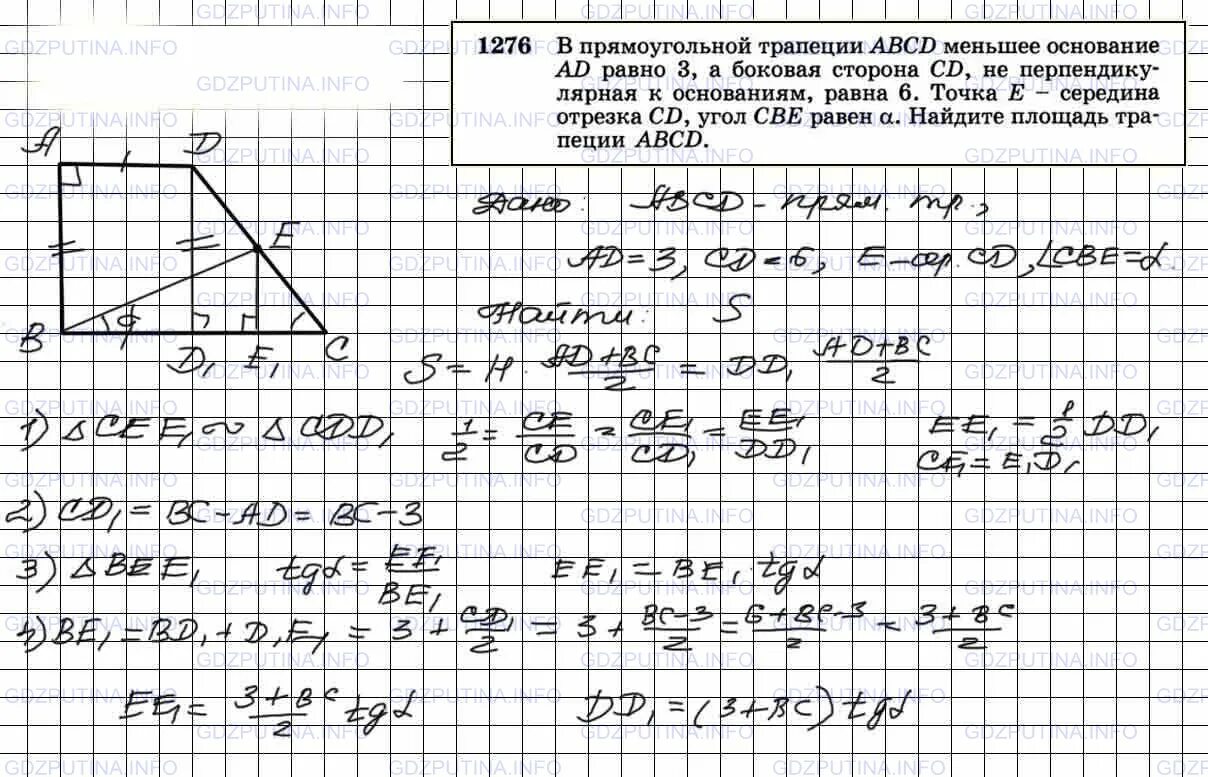 1276 В прямоугольной трапеции ABCD меньшее основание
AD равно 3, а боковая сторона CD, не перпендику-
лярная к основаниям, равна 6. Точка E – середина
отрезка CD, угол CBE равен α. Найдите площадь тра-
пеции ABCD.
A D E B D₁ E₁ C
Дано: ABCD – прям. тр.,
AD = 3, CD = 6, E – сер. CD, ∠CBE = α.
Найти: S
S = H · (AD + BC)/2 = DD₁ (AD + BC)/2
1) △CEE₁ ~ △CDD₁ 1/2 = CE/CD = CE₁/CD₁ = EE₁/DD₁ EE₁ = 1/2 DD₁
CE₁ = E₁D₁
2) CD₁ = BC – AD = BC – 3
3) △BEE₁ tgα = EE₁/BE₁ EE₁ = BE₁ · tgα
4) BE₁ = BD₁ + D₁E₁ = 3 + CD₁/2 = 3 + (BC–3)/2 = (6+BC–3)/2 = (3+BC)/2
EE₁ = (3+BC)/2 tgα DD₁ = (3+BC) tgα
GDZPUTINA.INFO